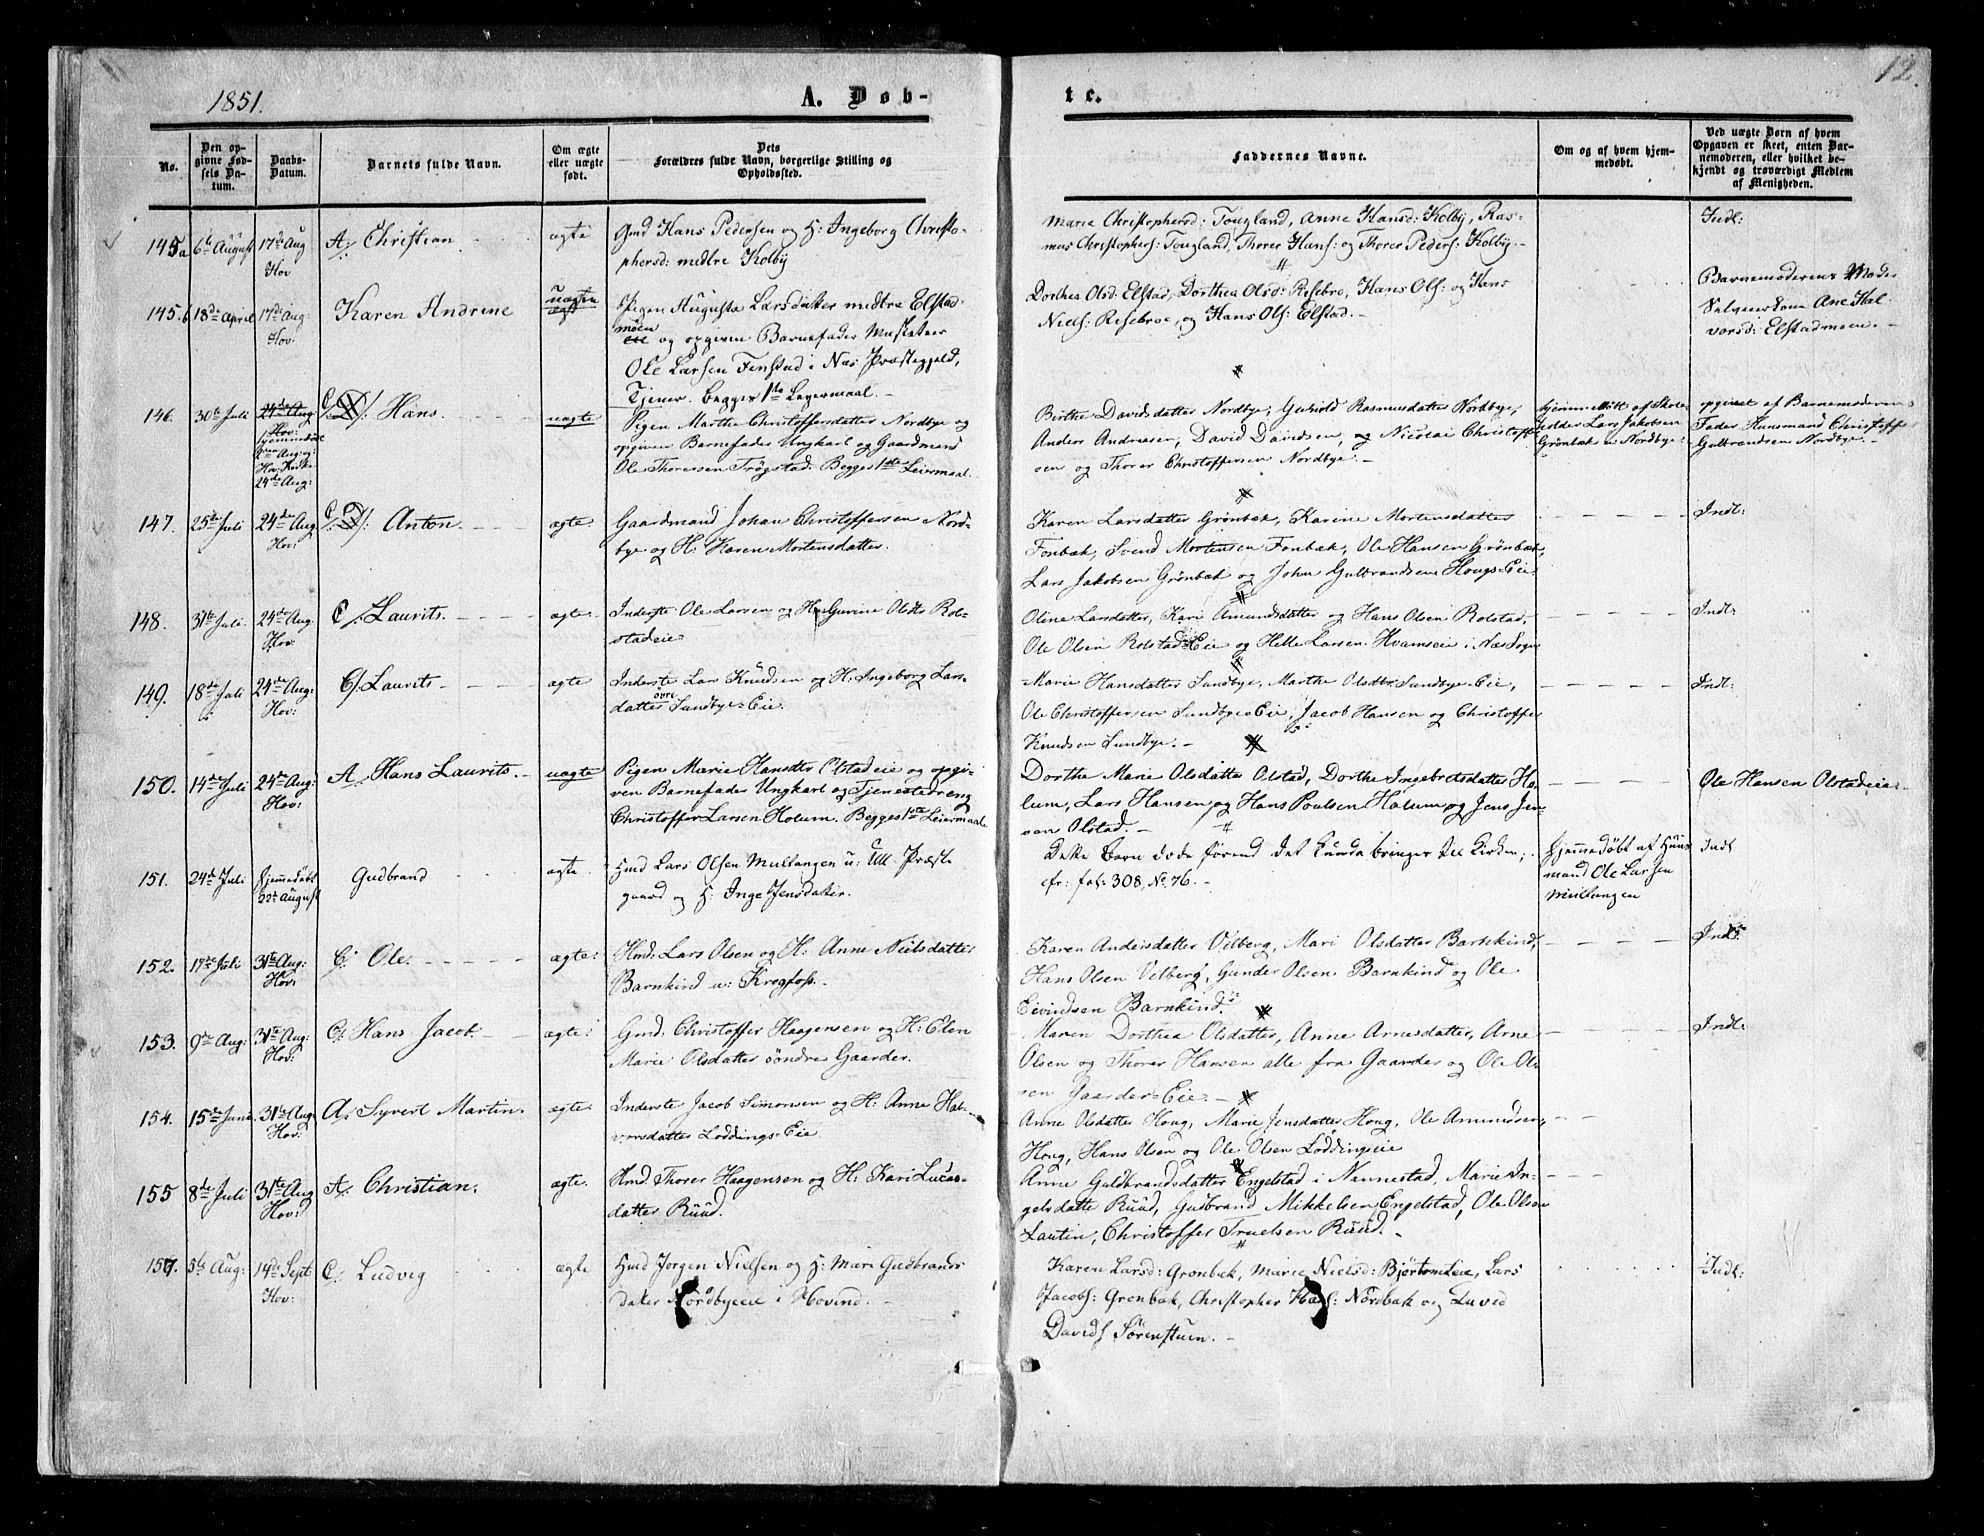 1851.
A. Døb-
te.
12.
No.
Den op-
givne Fød-
sels Da-
tum.
Daabs-
Datum.
Barnets fulde Navn.
Om ægte
eller uægte
født.
Dets
Forældres fulde Navn, borgerlige Stilling og
Opholdssted.
Faddernes Navne.
Om og af hvem hjem-
medøbt.
Ved uægte Børn af hvem
Opgaven er skeet, enten Bar-
nemoderen, eller hvilket be-
kjendt og troværdigt Medlem
af Menigheden.
145a 6te August 17de Aug Hov A/: Christian ægte
Gmd Hans Pedersen og H: Ingeborg Christo-
phersd: medtre Kolby
Marie Christophersd: Tougland, Anne Hansd: Kolby, Ras-
mus Christophers: Tougland, Thorer Hans: og Thorer Peders: Kolby.
Indl:
145.b 18de April 17de Aug: Hov: Karen Andrine uægte
Pigen Augusta Larsdatter medtre Elstad-
moen og opgiven Barnefader Musketeer
Ole Larsen Fenstad i Næs Præstegjeld,
Tjener. Begges 1ste Leyermaal.
Dorthea Olsd: Elstad, Dorthea Olsd: Risebro, Hans Ols: og Hans
Niels: Risebroe, og Hans Ols: Elstad.
Barnemoderens Moder
Ane Hal-
vorsd: Elstadmoen.
146. 30te Juli 24de Aug Hov: hjemmedøbt Aug: og Hov Kirke 24de Aug: C/: Hans. uægte
Pigen Marthe Christoffersdatter Nordbye og
opgiven Barnefader Ungkarl og Gaardmand
Ole Thoresen Trøgstad. Begges 1ste Leiermaal.
Birthe Davidsdatter Nordbye, Gunild Rasmusdatter Nordbye,
Anders Andreasen, David Davidsen, og Nicolai Christoffer-
sen og Thorer Christoffersen Nordbye.
hjemmedøbt af Skole-
holder Lars Jakobsen
Grønbæk u: Nordbye.
opgivet af Barnemoderens
Fader Huusmand Christoffer
Gulbrandsen Nordbye.
147. 25de Juli 24de Aug Hov: C/: Anton. ægte.
Gaardmand Johan Christoffersen Nord-
bye og H: Karen Mortensdatter.
Karen Larsdatter Grønbæk, Karine Mortensdatter
Fonbæk, Svend Mortensen Fonbæk, Ole Hansen Grønbæk,
Lars Jakobsen Grønbæk og John Gulbrandsen Hougs-Eie
Indl:
148. 31te Juli 24de Aug. Hov: C/: Laurits. ægte.
Inderste Ole Larsen og H: Gurine Olsdtr Rol-
stadeie
Oline Larsdatter, Kari Amundsdatter og Hans Olsen Rolstad,
Ole Olsen Rolstad-Eie og Helle Larsen Kvamseie i Næs Sogn
Indl:
149. 18de Juli 24de Aug: Hov: C/: Laurits ægte
Inderste Lars Knudsen og H: Ingeborg Lars-
datter øvre Sundbye-Eie.
Marie Hansdatter Sundbye, Marthe Olsdtr Sundbye-Eie,
Ole Christoffersen Sundbye-Eie, Jacob Hansen og Christoffer
Knudsen Sundbye.
Indl:
150. 14de Juli 24de Aug: Hov: A/: Hans Laurits. uægte
Pigen Marie Hansdtr Olstadeie og opgi-
ven Barnefader Ungkarl og Tjenestedreng
Christoffer Larsen Holum. Begges 1ste Leiermaal.
Dorthe Marie Olsdatter Olstad, Dorthe Ingebretsdatter Ho-
lum, Lars Hansen og Hans Poulsen Holum og Jens Jen-
sen Olstad.
Ole Hansen Olstadeie
151. 24de Juli hjemmedøbt 22de August Gudbrand ægte.
Hmd Lars Olsen Multangen u: Ull: Præste
gaard og H: Inge Jensdatter.
Dette Barn døde førend det kunde bringes til Kirken;
cfr: fol: 308, No. 76.
hjemmedøbt af Huus
mand Ole Larsen
Multangen
Indl
152. 17de Juli 31te Aug: Hov: C/: Ole. ægte:
Hmd: Lars Olsen og H: Anne Nielsdatter
Barnkind u: Krogfoss.
Karen Andersdatter Velberg, Mari Olsdatter Barnkind,
Hans Olsen Velberg, Gunder Olsen Barnkind og Ole
Eivindsen Barnkind.
Indl:
153. 9de Aug: 31te Aug: Hov: C/: Hans Jacob. ægte
Gmd. Christoffer Haagensen og H: Elen
Marie Olsdatter søndre Gaarder.
Maren Dorthea Olsdatter, Anne Arnesdatter, Arne
Olsen og Thorer Hansen alle fra Gaarder og Ole Ol-
sen Gaarder-Eie.
Indl:
154. 15de Juni. 31te Aug: Hov: A/: Syvert Martin. ægte.
Inderste Jacob Simonsen og H: Anne Hal-
vorsdatter Løddings-Eie
Anne Olsdatter Houg, Marie Jensdatter Houg, Ole Amundsen
Houg, Hans Olsen og Ole Olsen Løddingseie
155 8de Juli 31te Aug Hov: A/: Christian. ægte.
Hmd. Thorer Haagensen og H: Kari Lucas-
datter Ruud.
Anne Guldbrandsdatter Engelstad i Nannestad, Marie In-
gelsdatte Ruud, Gudbrand Mikkelsen Engelstad, Ole Olsen
Lautin, Christoffer Truelsen Ruud.
157. 5te Aug: 14de Sept Hov: C/: Ludvig ægte
Hmd Jørgen Nielsen og H: Mari Gudbrands
datter Nordbyeeie i Hovind.
Karen Larsd: Grønbæk, Marie Nielsd: Bjørtomteie, Lars
Jacobs: Grønbæk, Christopher Hans: Nordbæk og David
Davids Sørenstuen.
Indl: